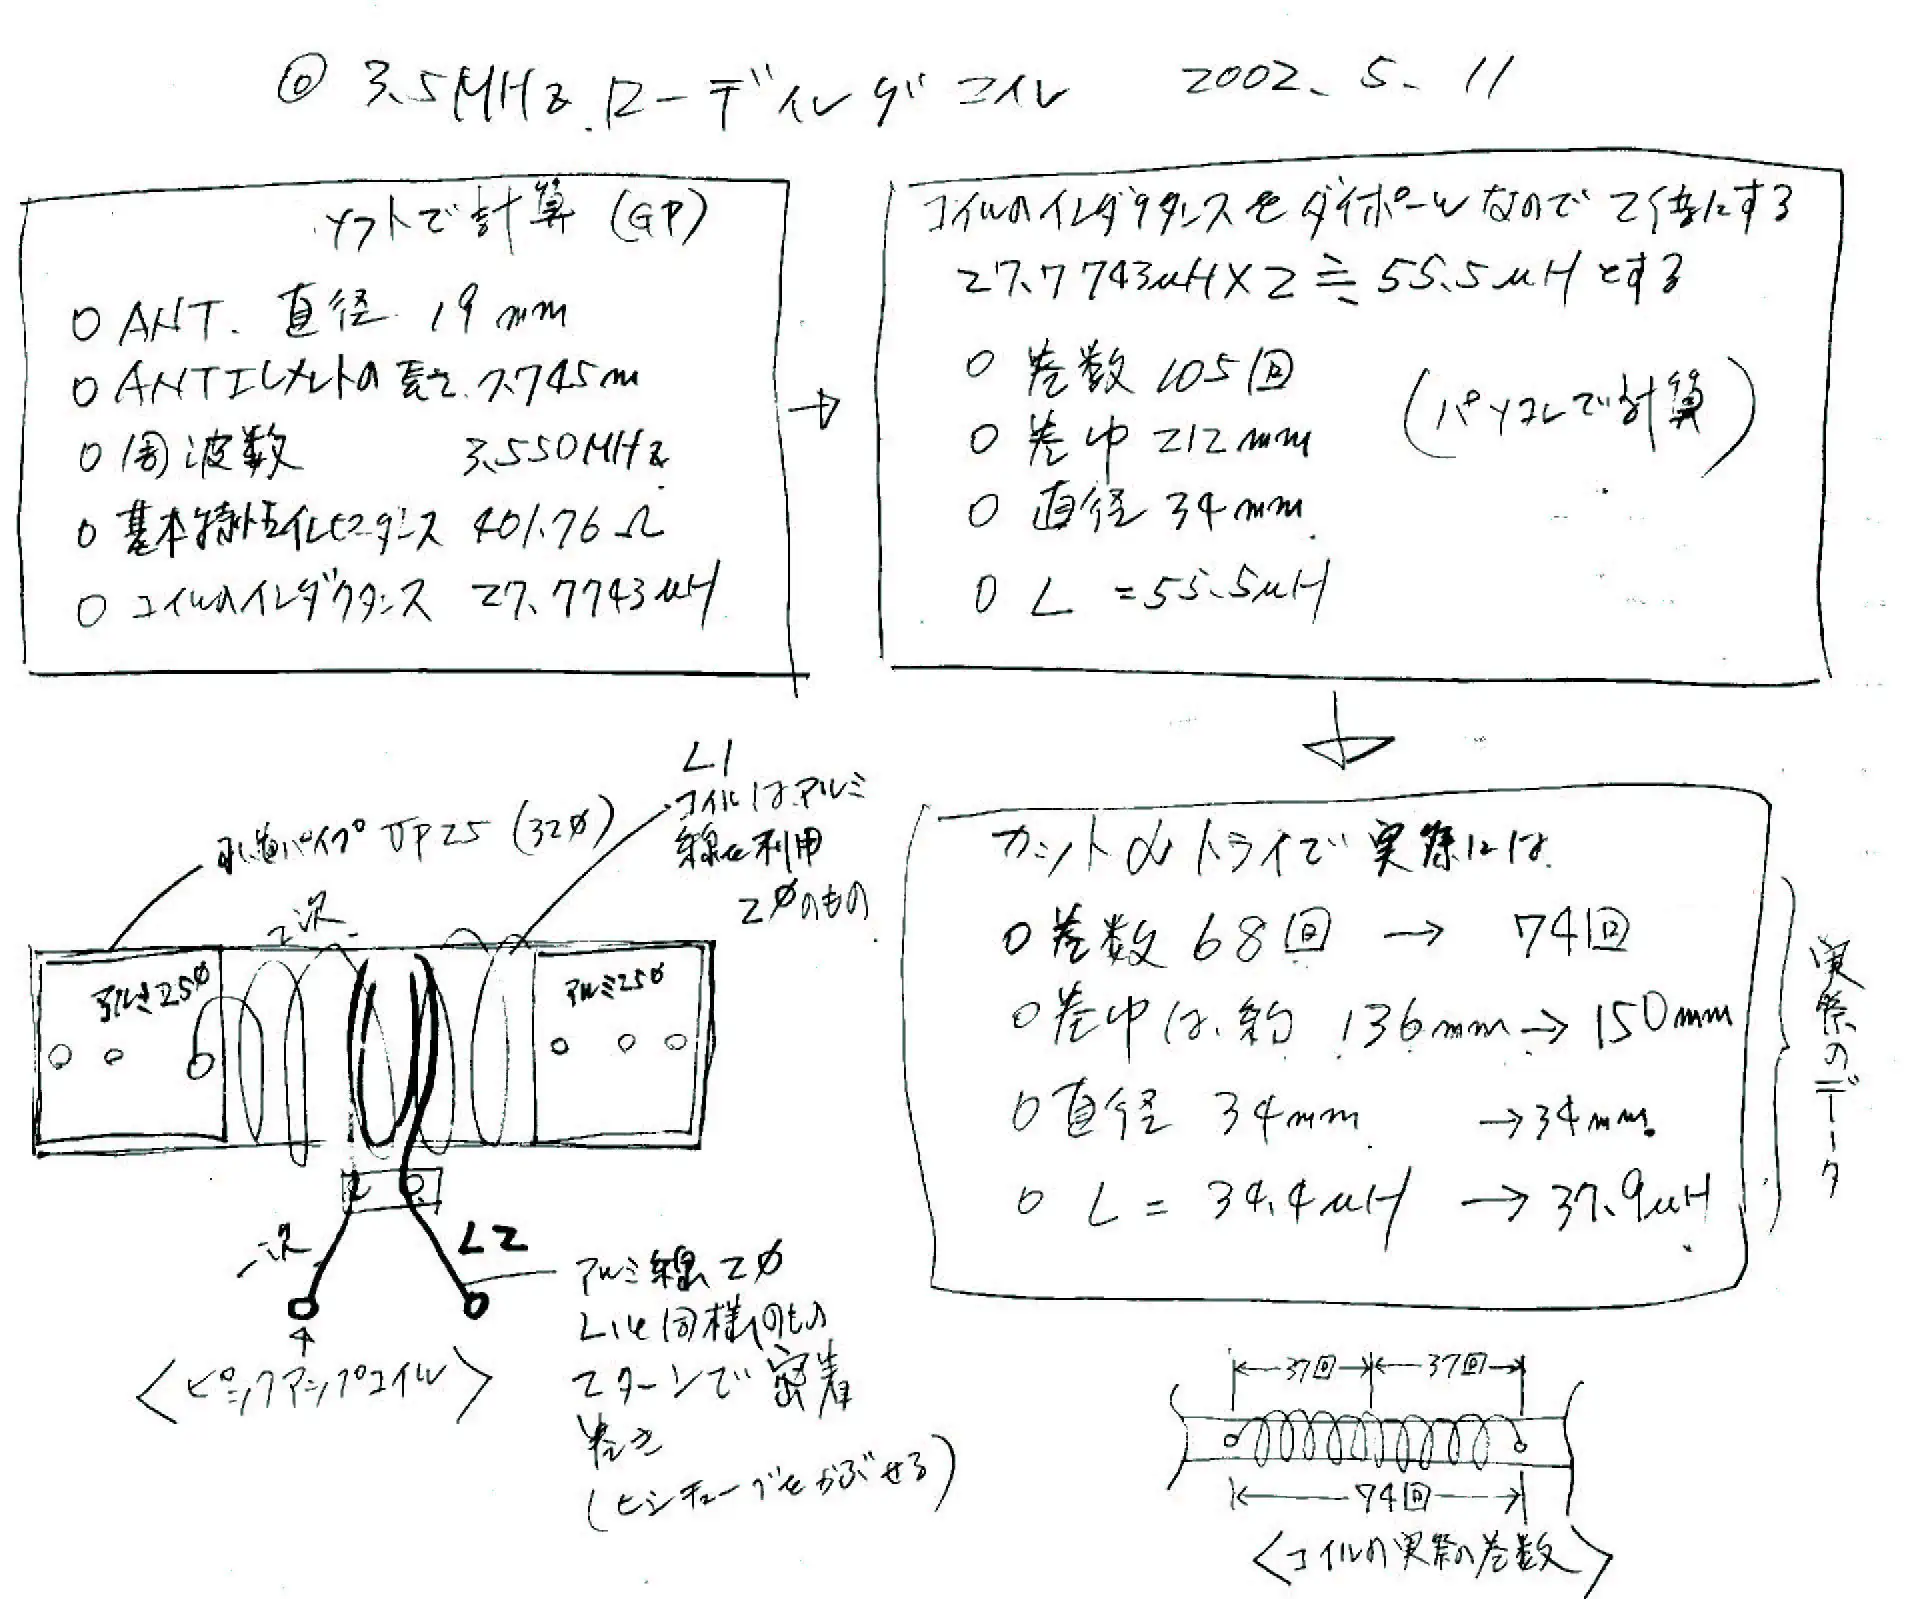 ◎ 3.5MHz ローディングコイル 2002. 5. 11
ソフトで計算 (GP)
○ ANT. 直径 19mm
○ ANTエレメントの長さ 7.745m
○ 周波数 3.550MHz
○ 基本特性インピーダンス 401.76Ω
○ コイルのインダクタンス 27.7743μH
コイルのインダクタンスをダイポールなので2倍にする
27.7743μH×2≒55.5μHとする
○ 巻数 105回
○ 巻巾 212mm
(パソコンで計算)
○ 直径 34mm
○ L =55.5μH
カット&トライで実際には
○ 巻数 68回 → 74回
○ 巻巾は約 136mm → 150mm
○ 直径 34mm → 34mm
○ L = 34.4μH → 37.9μH
実際のデータ
L1
コイルはアルミ
線を利用
2φのもの
水道パイプ VP25 (32φ)
2次
アルミ25φ
アルミ25φ
一次
L2
<ピックアップコイル>
アルミ線2φ
L1と同様のもの
2ターンで密着
巻き
(ヒシチューブをかぶせる)
37回 37回
74回
<コイルの実際の巻数>